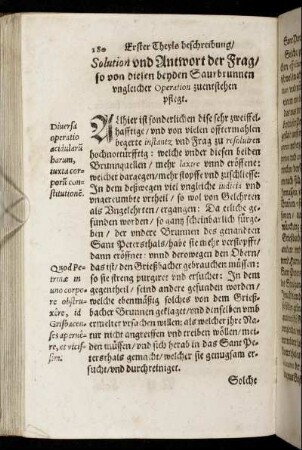 180 Erster Theyls beschreibung/
Solution vnd Antwort der Frag/
so von diesen beyden Saurbrunnen
vngleicher Operation zuentstehen
pflegt.
ALlhier ist sonderlichen dise sehr zweiffel-
hafftige / vnd von vielen offtermahlen
begerte instantz vnd Frag zu resolviren
hochnotürfftig: welche vnder diesen beiden
Brunnquellen / mehr laxire vnnd eröffne:
welcher dargegen/mehr stopffe vnd zuschliesse:
In dem deßwegen viel vngleiche iudicia vnd
vngegrunte vrtheil / so wol von Gelehrten
als Vngelehrten / ergangen: Da etliche ge-
funden worden / so gang scheinbarlich fürge-
ben / der vndere Brunnen des genandten
Sant Petersthals/habe sie mehr verstopfft/
dann eröffnet: vnnd derowegen den Obern/
das ist/ den Grießbacher gebrauchen müssen:
so sie streng purgiert vnd ersuchet: In dem
gegentheil / seind andere gefunden worden /
welche ebenmässig solches von dem Grieß-
bacher Brunnen geklaget/vnd denselben vmb
ermelter vrsachen willen: als welcher ihre Na-
tur nicht angreiffen vnd treiben wöllen/mei-
den müssen / vnd sich herab in das Sant Pe-
tersthals gemacht/ welcher sie genugsam er-
sucht/vnd durchreiniget.
Solche
Diuersa
operatio
acidularũ
harum,
iuxta cor-
porũ con-
stitutionẽ.
Quod Pe-
trinæ in
uno corpo-
re obstru-
xêre, id
Grisbacen-
ses aperuê-
re, et vicis-
sim.